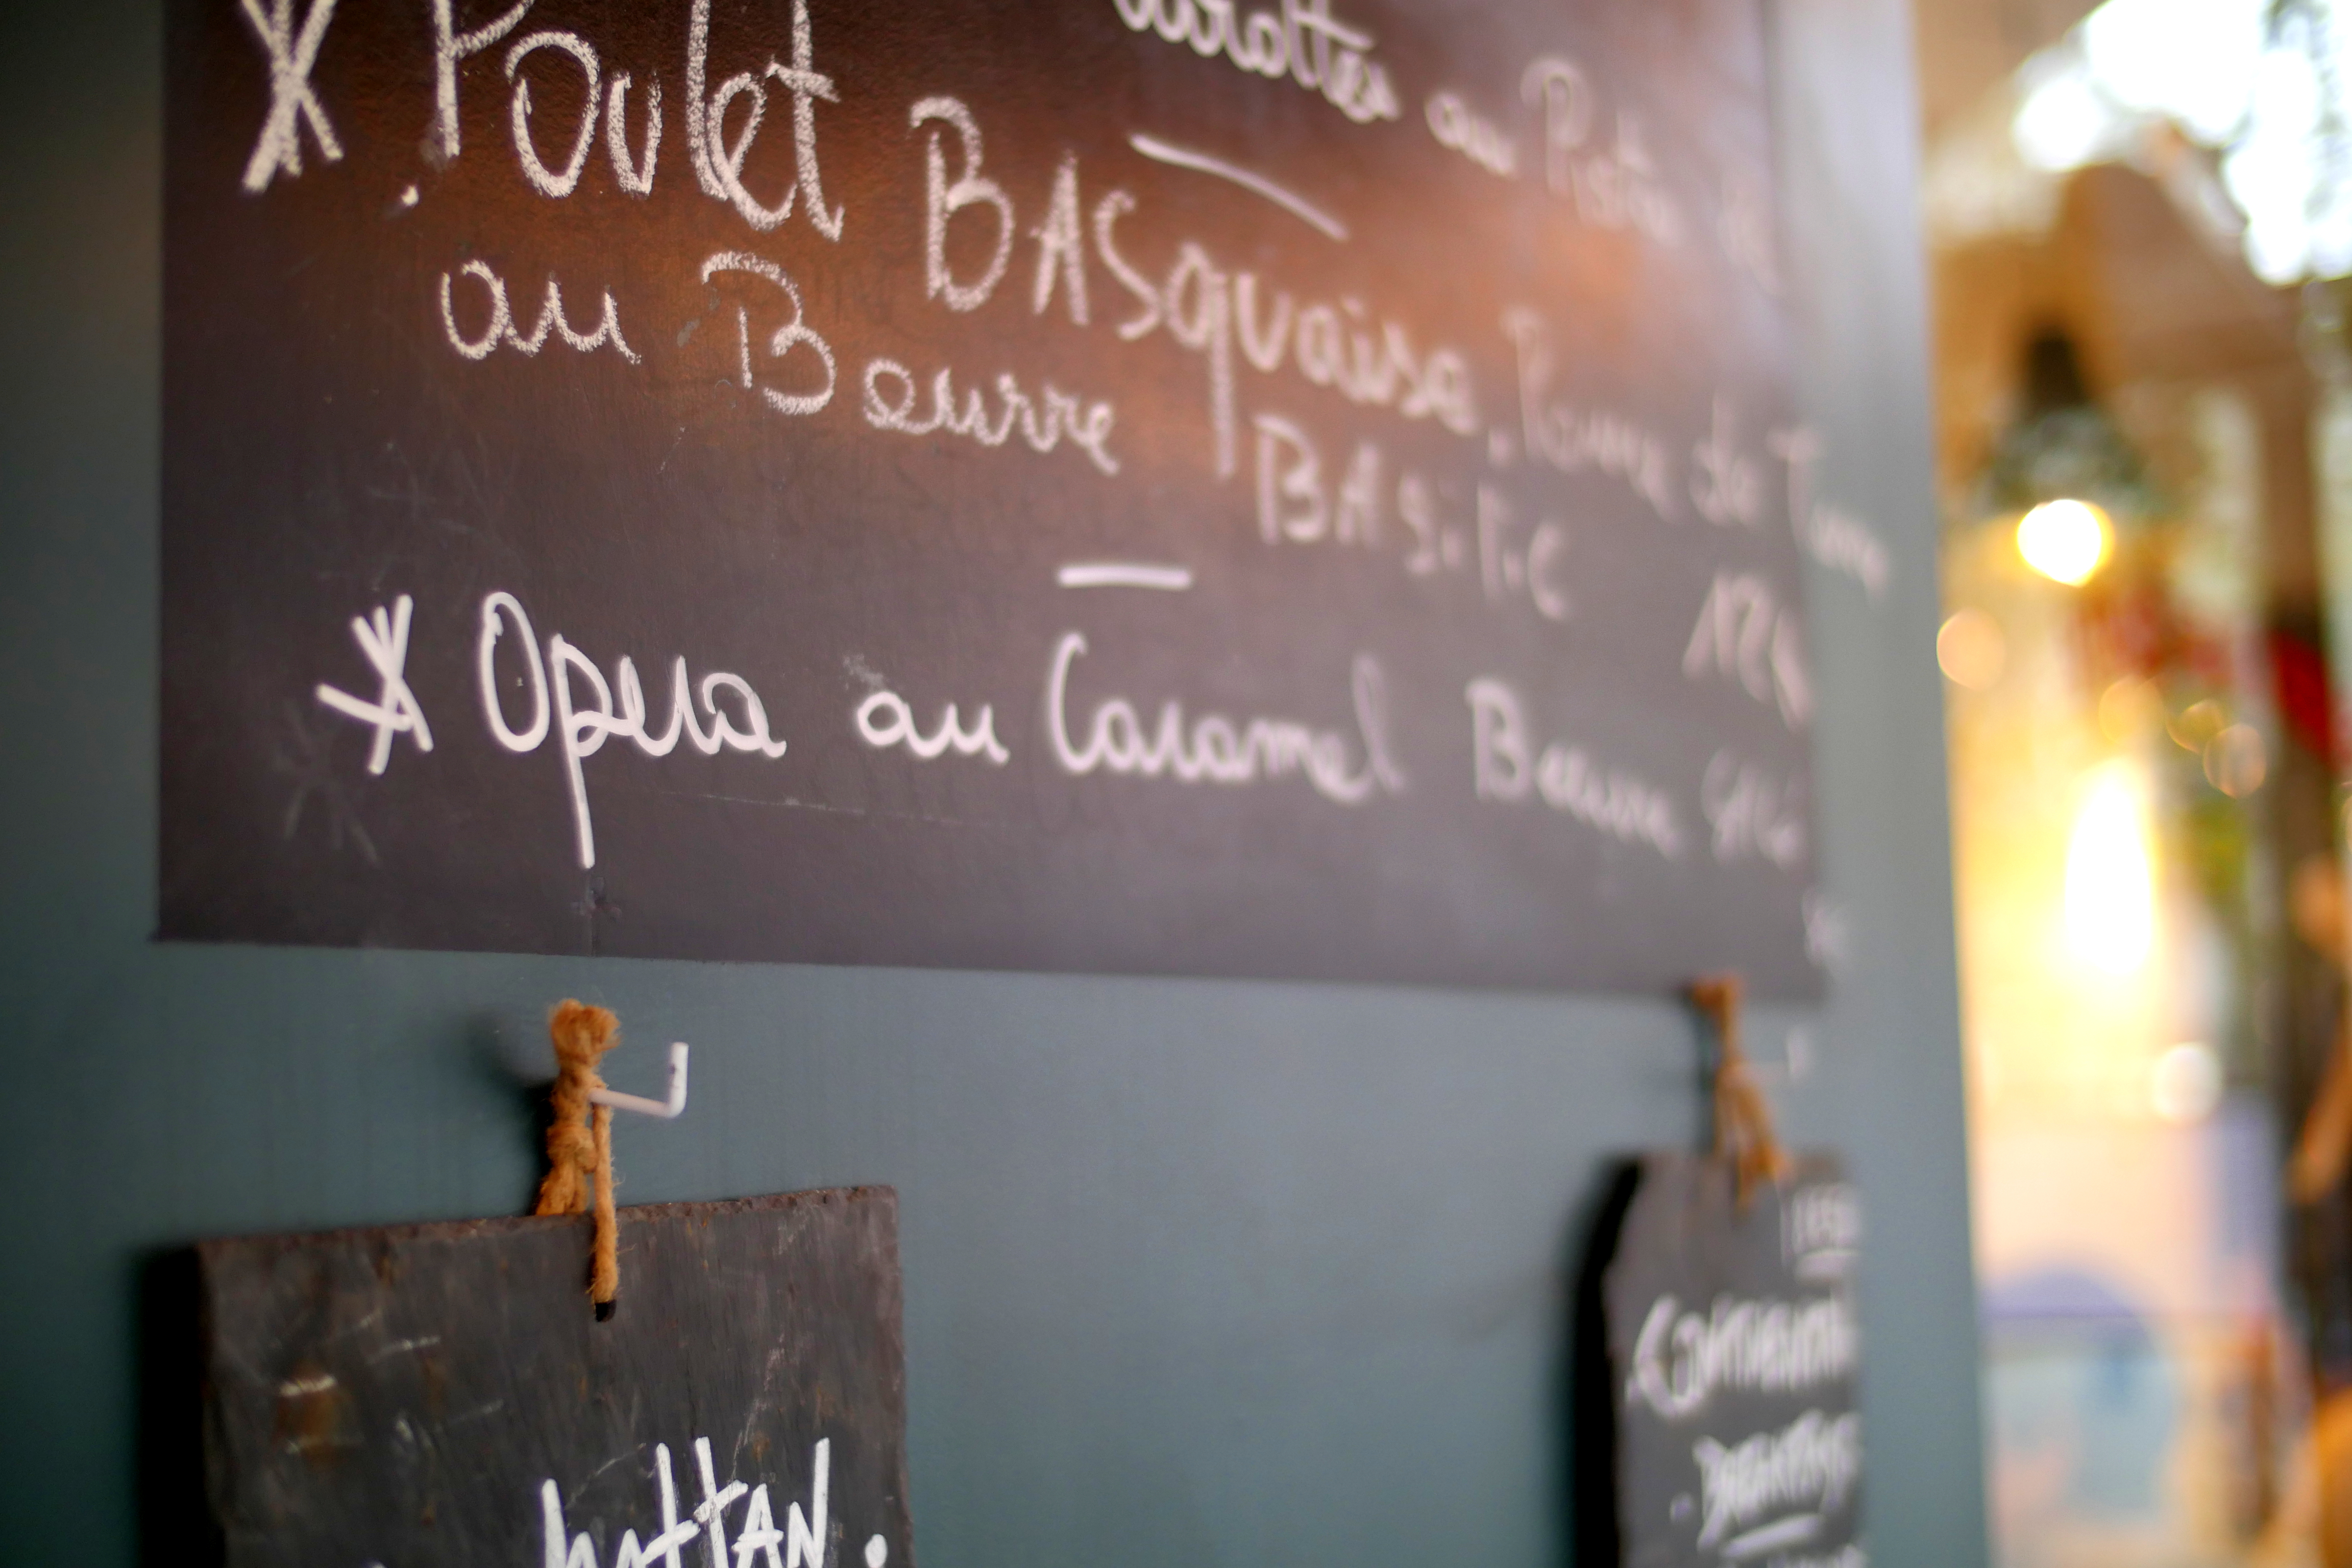 Carottes au Pistou de
* Poulet BASquaise, Pomme de Terre
au Beurre BASiliC
* Opera au Caramel Beurre Salé
hattan.
Continental
BREAKFAST